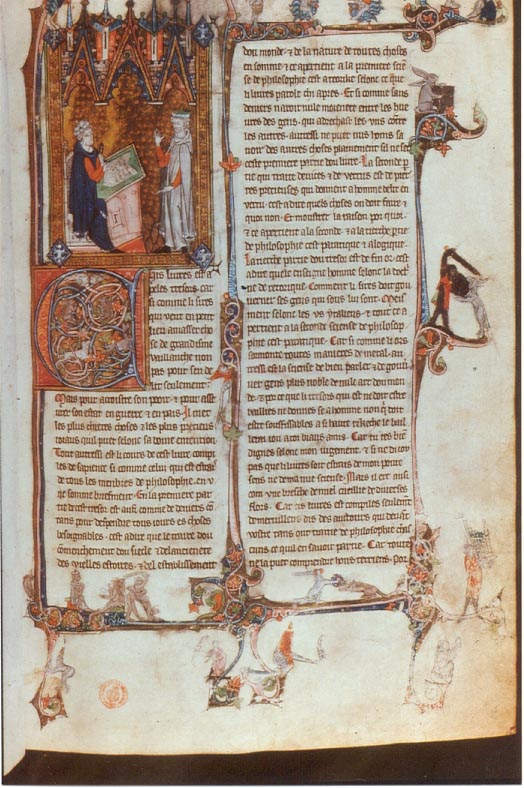 Cis livres est a
peles tresors. car
si comme li sires
qui veut en petit
lieu amasser cho
se de grandisme
vaillance non
pas pour son de
lit seulement.
Mais pour acroistre son pooir & pour asse
urer son estat en guerre & en pais. Il met
les plus chieres choses & les plus precieus
ioiaus quil puet selonc sa bonne entention
Tout autressi est li cours de cest livre compi
les de sapience si comme celui qui est estrais
de tous les membres de philosophie. en u
ne somme briement. Et la premiere par
tie de cest tresor est ausi comme de deniers con
tans pour despendre tous iours es choses
besoignables. cest a dire que il traite dou
commencement dou siecle & de lancienete
des vielles estoires. & del establissement
dou monde. & de la nature de toutes choses
en somme. & ce apertient a la premiere scien
se de philosophie cest a teorike selonc ce que
li livres parole chi apres. Et si comme sans
deniers nauroit nule moienete entre les hue
vres des gens. qui adrechast les uns contre
les autres. autressi ne puet nus hons sa
voir des autres choses plainement sil ne set
ceste premiere partie dou livre. La seconde par
tie qui traite de vices & de vertus est de pier
res precieuses qui donnent a homme delit en
vertu. cest a dire quels choses on doit faire &
quoi non. Et monstre la raison por quoi.
& ce apertient a la seconde. & a la tierche partie
de philosophie cest pratique & a logique.
La tierche partie dou tresor est de fin or. cest
a dire quele ensigne homme selonc la doctri
ne de retorique. Comment li sires doit gou
verner ses gens qui sous lui sont. Meis
ment selonc les us ytaliens. & tout ce a
pertient a la seconde sciense de philosop
hie cest pratique. Car si comme li ors
sormonte toutes manieres de metal. au
tressi est la sciense de bien parler. & de gouv
ner gens plus noble de nule art dou mon
de. & por ce que li tresors qui est ne doit estre
bailliés ne donnes se a homme non qui doit
estre souffissables a si haute riketche le bail
lerai iou a toi biaus amis. Car tu ies bie
dignes selonc mon iugement. & si ne di iou
pas que li livres soit estrais de mon povre
sens ne de ma nue sciense. Mais il ert ausi
com une bresche de miel cueillie de diverses
flors. Car cis livres est compiles seulement
de merveilleus dis des auctours qui devant
nostre tans ont traitie de philosophie chas
cuns ce quil en savoit partie. Car toute
ne la puet comprendre hons terriens. Por